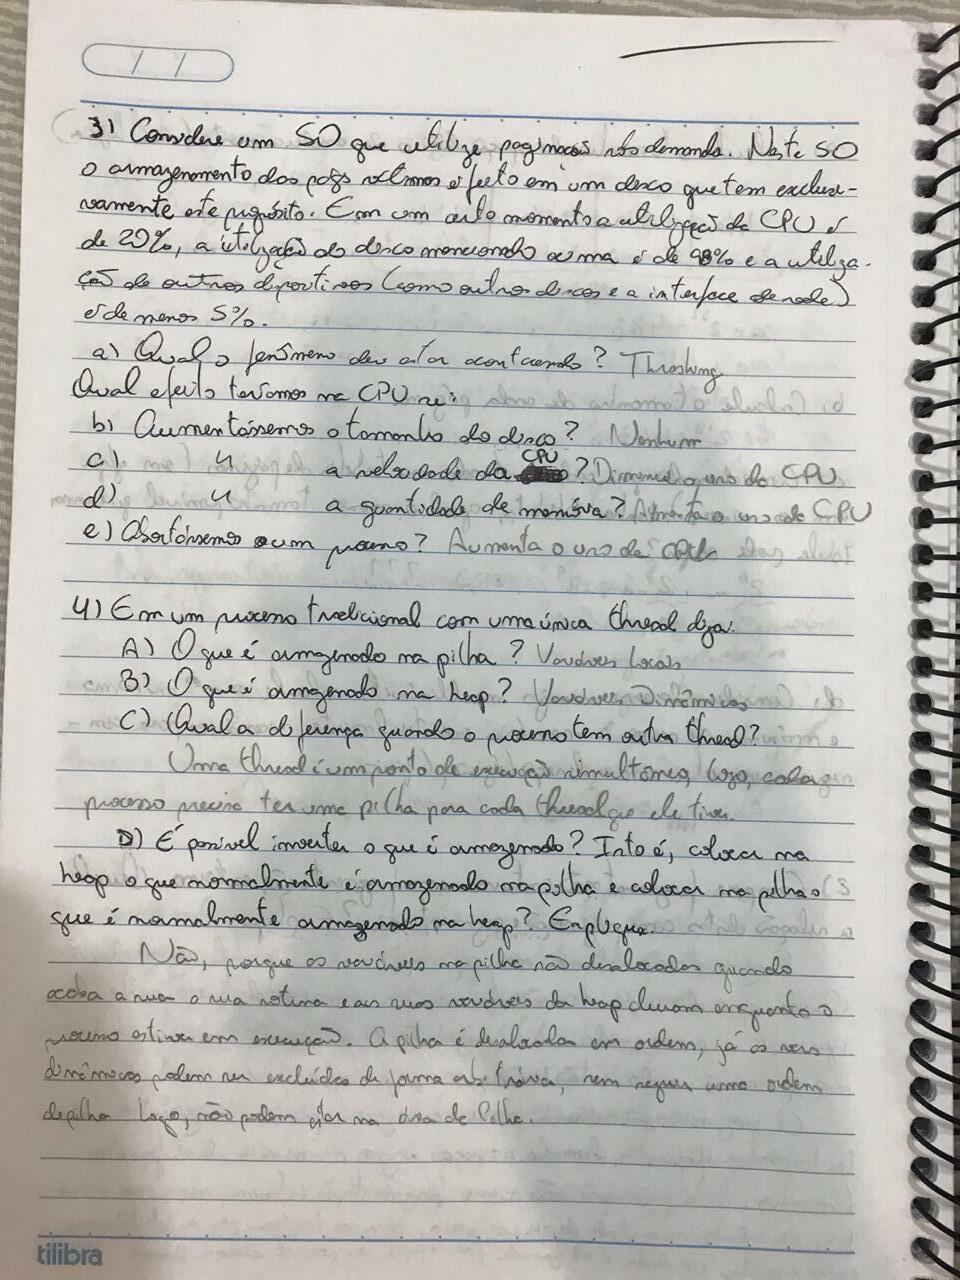 3) Considere um SO que utiliza paginação sob demanda. Neste SO
o armazenamento das págs victimas é feito em um disco que tem exclusi-
vamente este propósito. Em um certo momento a utilização da CPU é
de 20%, a utilização do disco mencionado acima é de 98% e a utiliza-
ção de outros dispositivos (como outros discos e a interface de rede)
é de menos 5%.
a) Qual o fenômeno deve estar acontecendo? Thrashing
Qual efeito teríamos na CPU se:
b) Aumentássemos o tamanho do disco? Nenhum
c) " a velocidade da CPU? Diminui o uso da CPU
d) " a quantidade de memória? Aumenta o uso da CPU
e) Abortássemos um processo? Aumenta o uso da CPU
4) Em um processo tradicional com uma única thread diga:
A) O que é armazenado na pilha? Variáveis locais
B) O que é armazenado na heap? Variáveis Dinâmicas
C) Qual a diferença quando o processo tem outra thread?
Uma thread é um ponto de execução simultânea, logo, cada
processo precisa ter uma pilha para cada thread que ele tiver.
D) É possível inverter o que é armazenado? Isto é, colocar na
heap o que normalmente é armazenado na pilha e colocar na pilha o
que é normalmente armazenado na heap? Explique.
Não, porque as variáveis na pilha são desalocadas quando
acaba a sua rotina e as suas variáveis da heap duram enquanto o
processo estiver em execução. A pilha é desalocada em ordem, já as vars
dinâmicas podem ser excluídas de forma arbitrária, sem seguir uma ordem
de pilha logo, não podem estar na área de Pilha.
tilibra